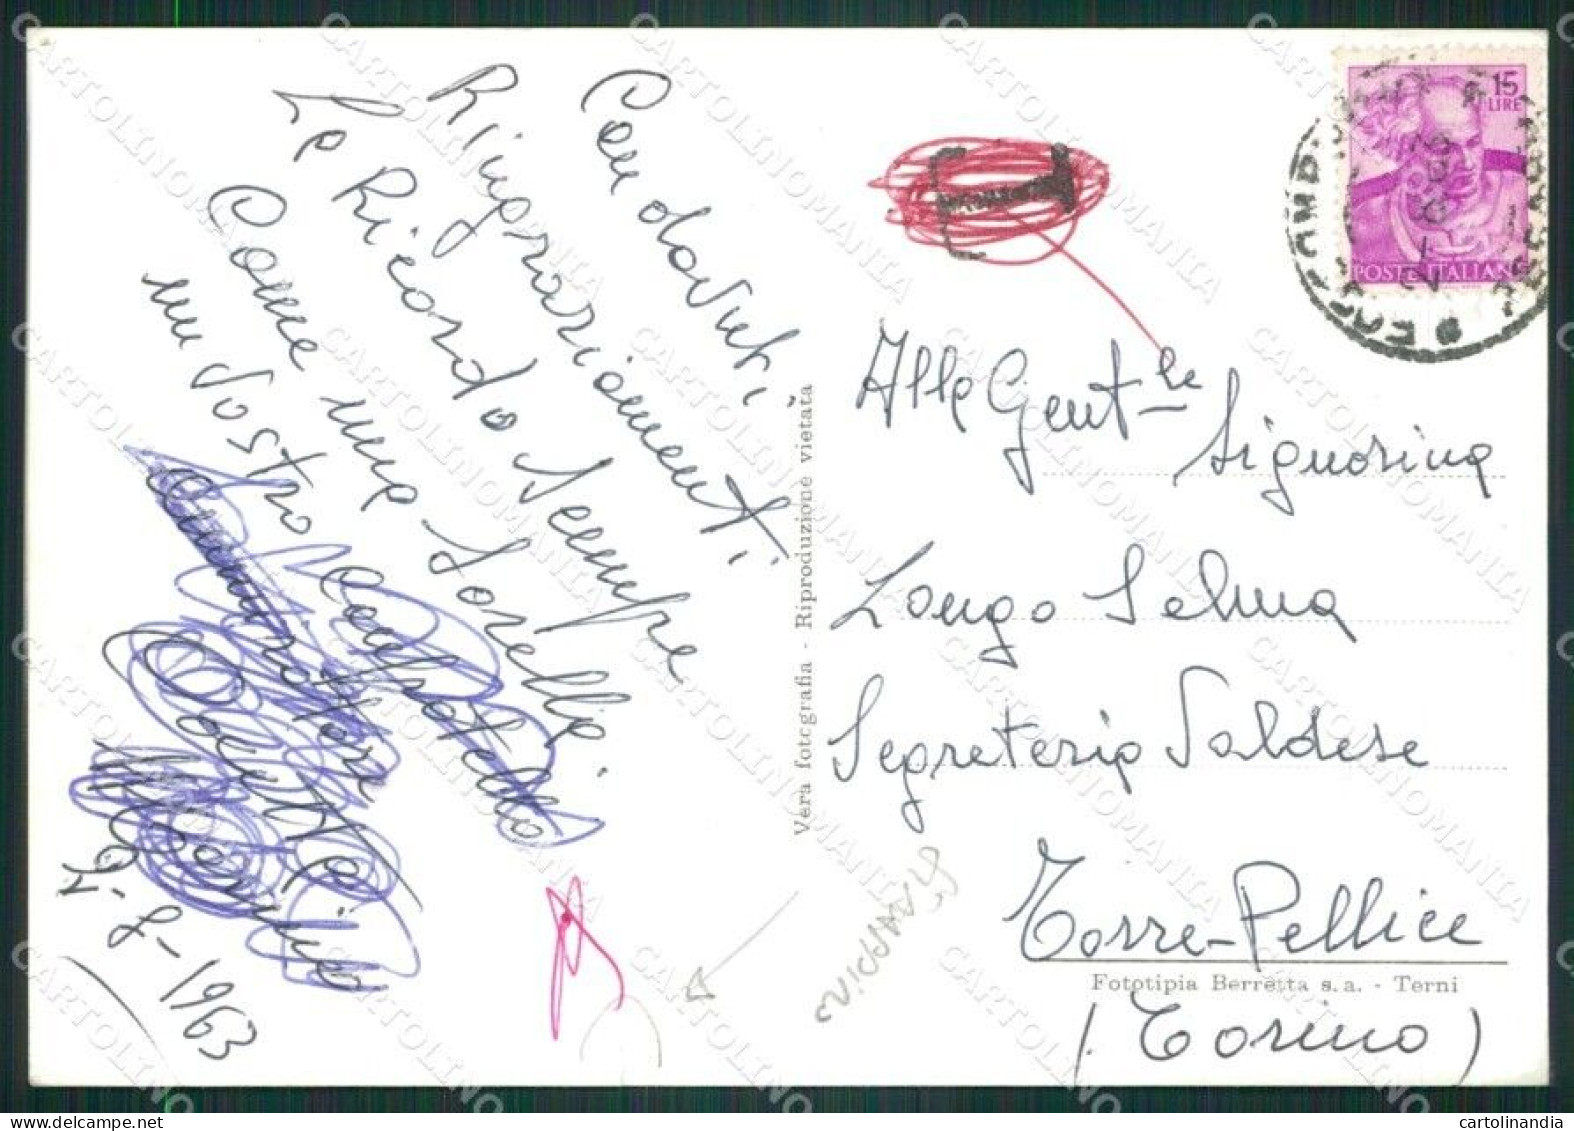 Con dovuti
Ringraziamenti
La Ricordo Sempre
Come una Sorella.
un Vostro confratello
ammiratore
9-8-1963
Vera fotografia - Riproduzione vietata
15
LIRE
POSTE ITALIANE
T
Alla Gent.le
Signorina
Longo Selma
Segreteria Valdese
Torre-Pellice
Fototipia Berretta s.a. - Terni
(Torino)
CARTOLINOMANIA
cartolinandia